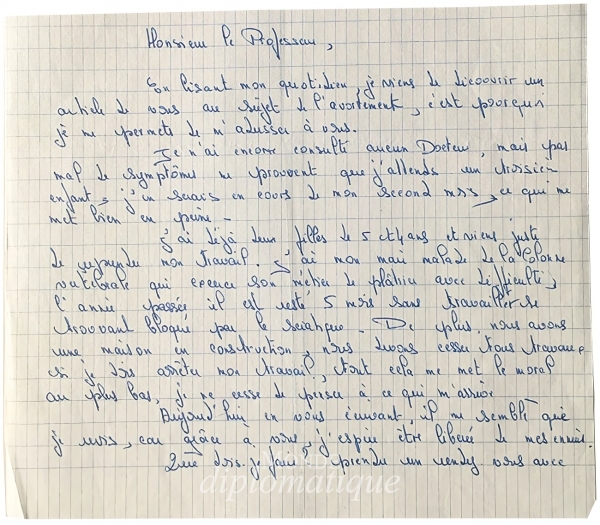 Monsieur le Professeur,
En lisant mon quotidien, je viens de découvrir un
article de vous au sujet de l'avortement, c'est pourquoi
je me permets de m'adresser à vous.
Je n'ai encore consulté aucun Docteur, mais pas
mal de symptômes me prouvent que j'attends un troisième
enfant, j'en serais en cours de mon second mois, ce qui me
met bien en peine -
J'ai déjà deux filles de 5 et 4 ans et viens juste
de reprendre mon travail. J'ai mon mari malade de la Colonne
vertébrale qui exerce son métier de plâtrier avec difficulté,
l'année passée il est resté 5 mois sans travailler se
trouvant bloqué par le sciatique. De plus, nous avons
une maison en construction, nous devons cesser tous travaux
si je dois arrêter mon travail, tout cela me met le moral
au plus bas, je ne cesse de penser à ce qui m'arrive
Aujourd'hui en vous écrivant, il me semble que
je revis, car grâce à vous, j'espère être libérée de mes ennuis.
Que dois-je faire ? prendre un rendez vous avec
diplomatique